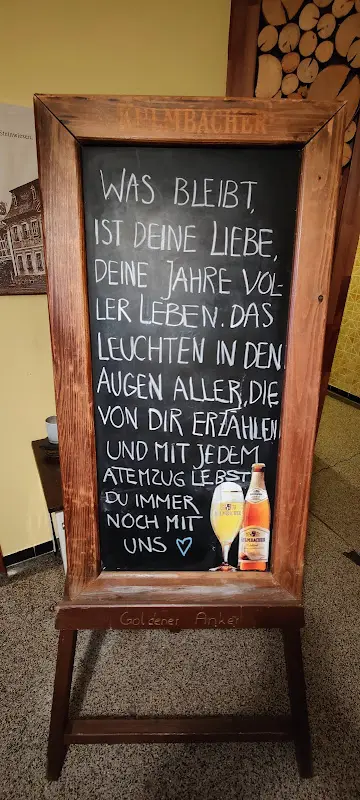 KULMBACHER
Steinwiesen
WAS BLEIBT,
IST DEINE LIEBE,
DEINE JAHRE VOL-
LER LEBEN. DAS
LEUCHTEN IN DEN
AUGEN ALLER, DIE
VON DIR ERZÄHLEN
UND MIT JEDEM
ATEMZUG LEBST
DU IMMER
NOCH MIT
UNS ♡
KULMBACHER
Goldener Anker